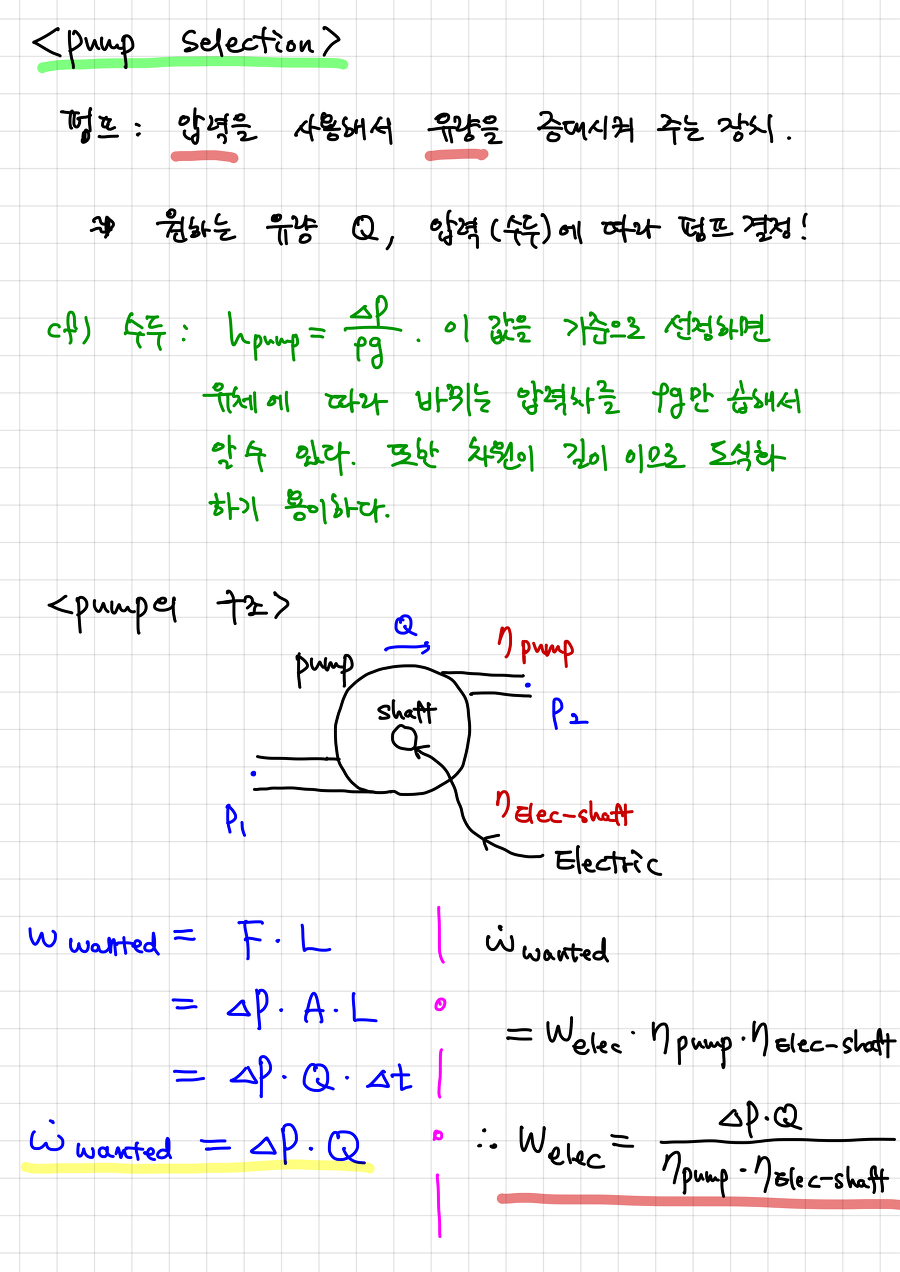 <pump selection>
펌프 : 압력을 사용해서 유량을 증대시켜 주는 장치.
⇒ 원하는 유량 Q, 압력(수두)에 따라 펌프 결정!
cf) 수두 : h_pump = ΔP/ρg . 이 값을 기준으로 선정하면
유체에 따라 바뀌는 압력차를 ρg만 곱해서
알 수 있다. 또한 차원이 길이 이므로 도식화
하기 용이하다.
<pump의 구조>
Q
η_pump
pump
shaft
P₂
P₁
η_Elec-shaft
Electric
W_wanted = F · L
= ΔP · A · L
= ΔP · Q · Δt
ẇ_wanted = ΔP · Q
ẇ_wanted
= W_elec · η_pump · η_Elec-shaft
∴ W_elec = ΔP·Q / η_pump · η_Elec-shaft